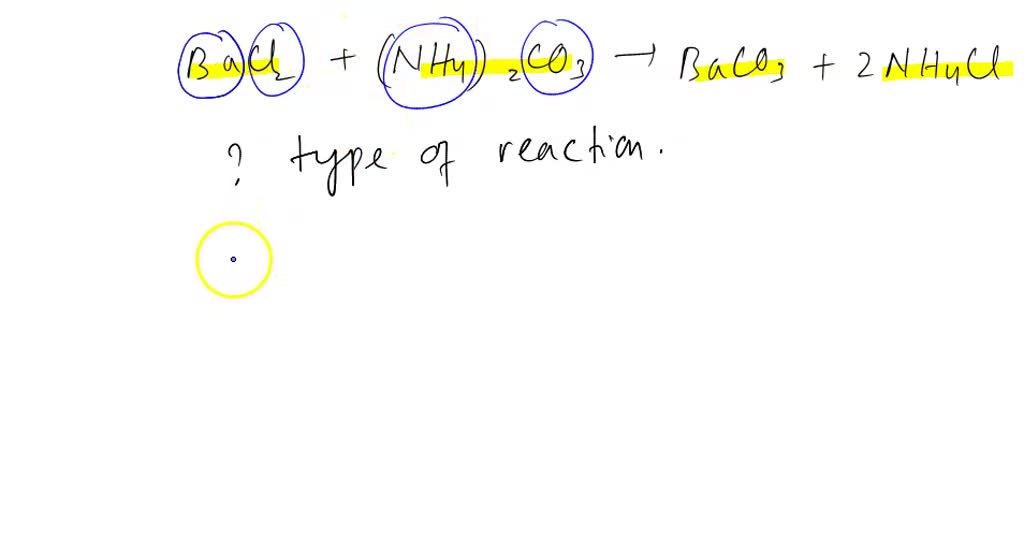 BaCl₂ + (NH₄)₂CO₃ → BaCO₃ + 2NH₄Cl
? type of reaction.